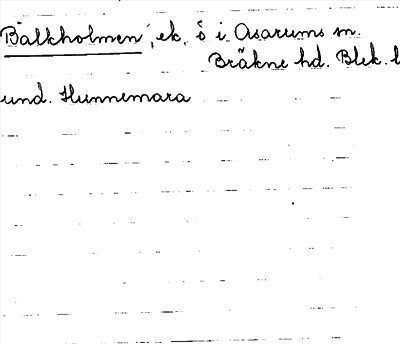 Balkholmen, ek. ö i Asarums sn.
Bräkne hd. Blek. l
und. Hunnemara